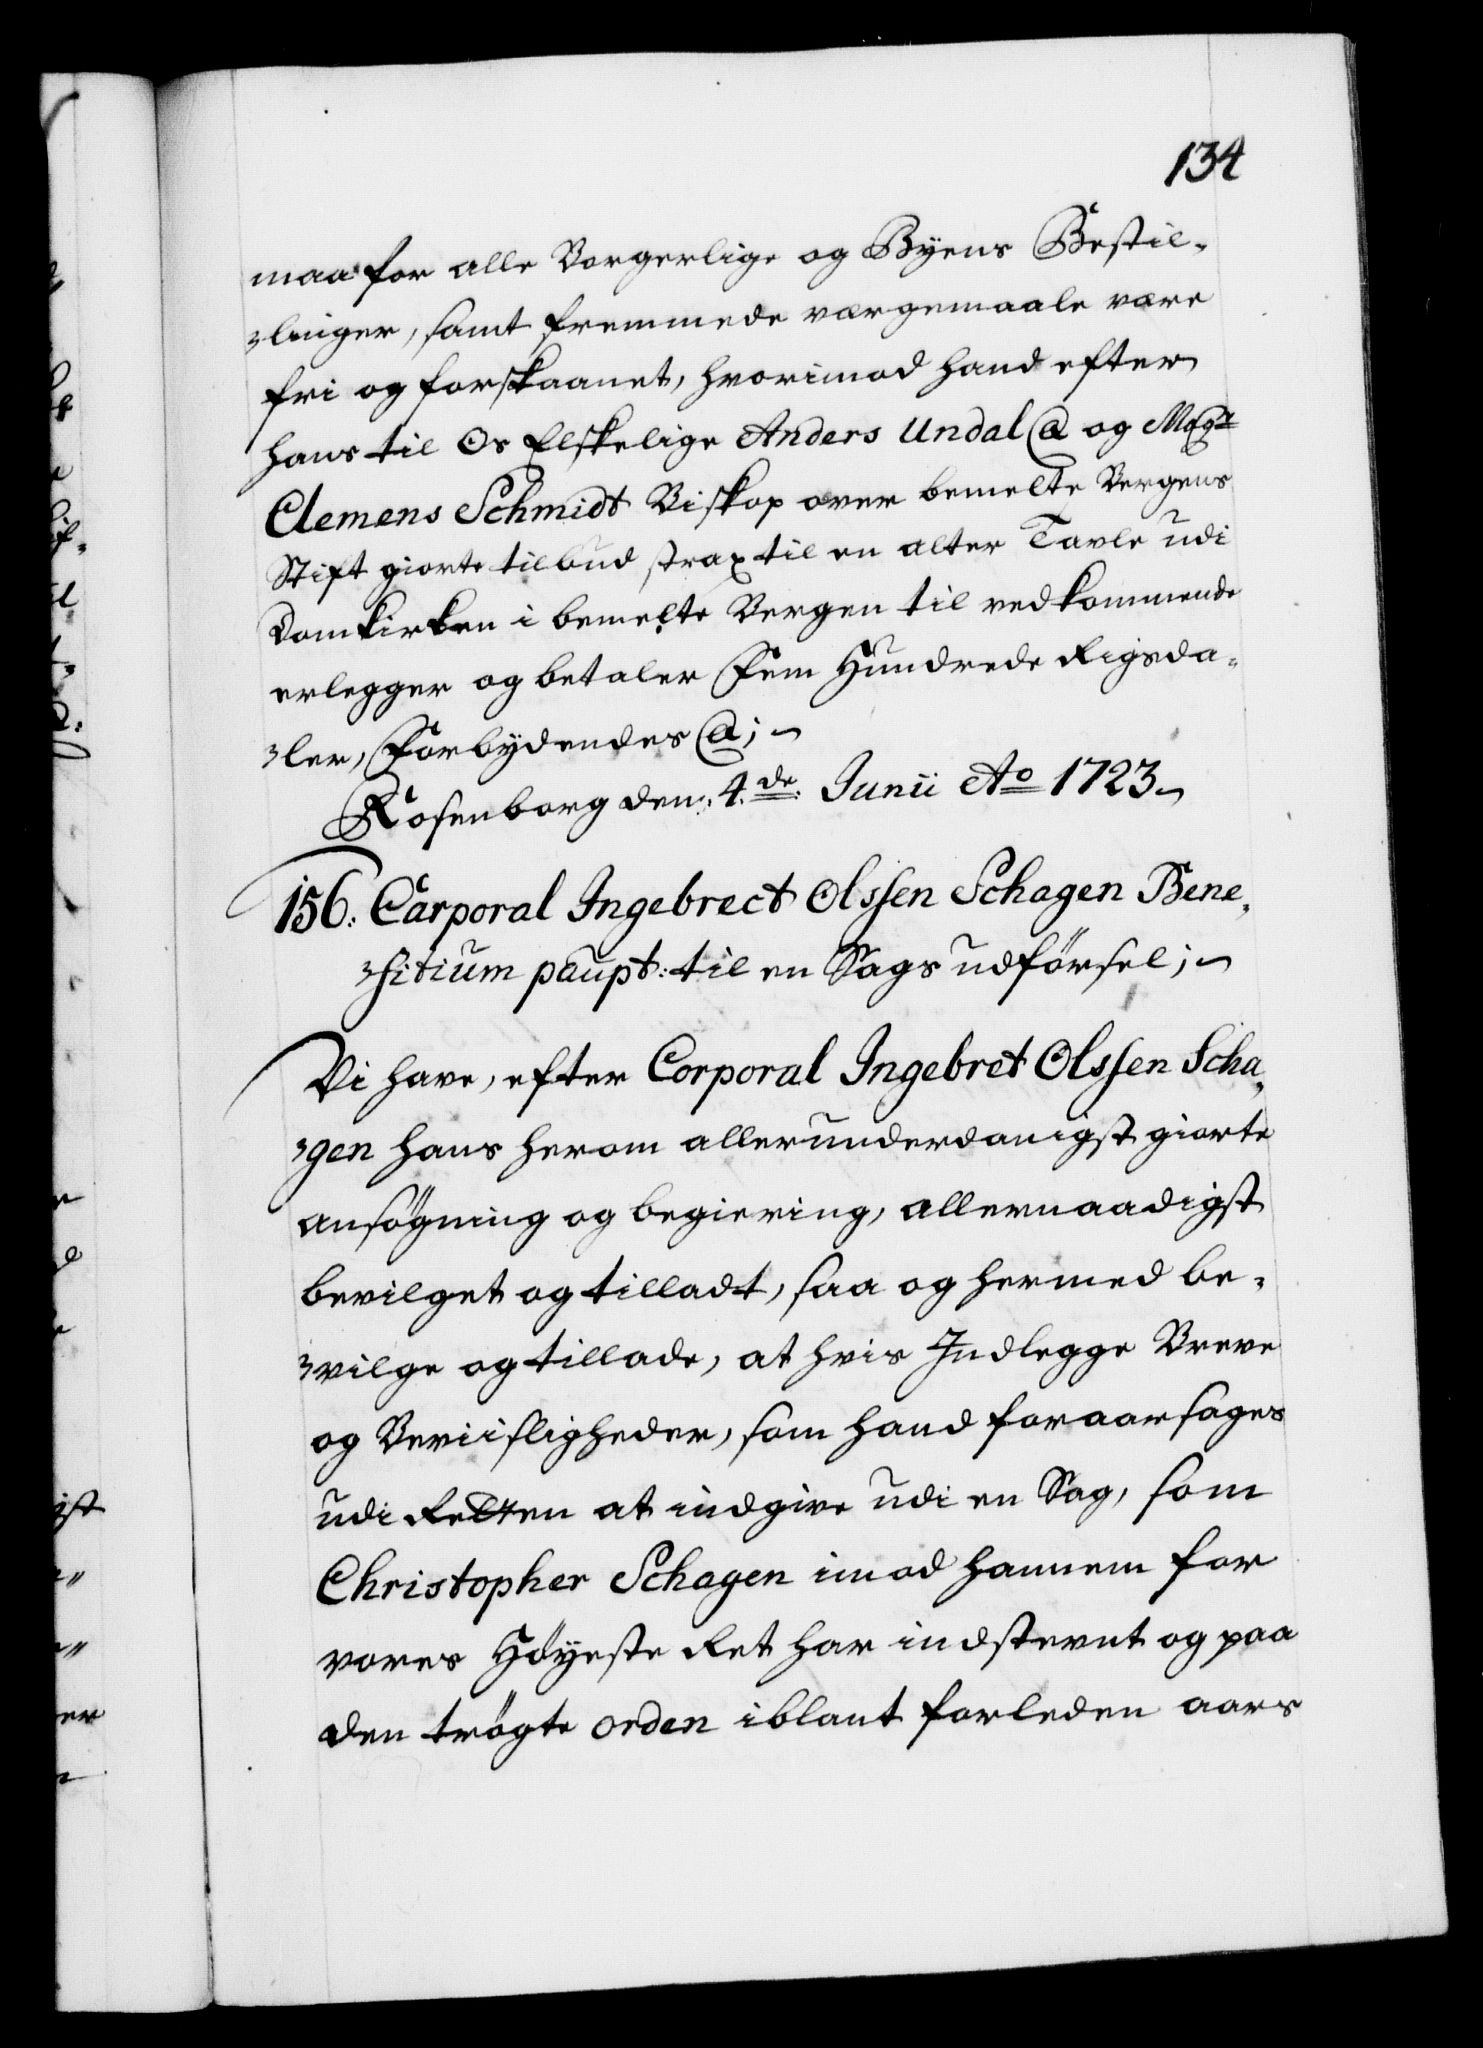 134
maa for alle Borgerlige og Byens Bestil-
linger, samt fremmede værgemaale være
fri og forskaanet, hvorimod hand efter
hans til Os Elskelige Anders Undal @ og Magr
Clemens Schmidt Biskop over bemelte Bergens
Stift giorte tilbud strax til en alter Tavle udi
Domkirken i bemelte Bergen til vedkommende
erlegger og betaler Fem Hundrede Rigsda-
ler, Forbydendes @;
Rosenborg den 4.de Junii Ao 1723
156. Carporal Ingebrect Olssen Schagen Bene-
fitium paupt: til en Sags udførsel;
Vi have, efter Corporal Ingebret Olssen Scha-
gen hans herom allerunderdanigst giorte
ansøgning og begiering, allernaadigst
bevilget og tilladt, saa og hermed be-
vilge og tillade, at hvis Indlegge Breve
og Beviisligheder, som hand foraarsages
udi Retten at indgive udi en Sag, som
Christopher Schagen imod hannem for
vores Høyeste Ret har indstevnt og paa
den trøgte orden iblant forleden aars